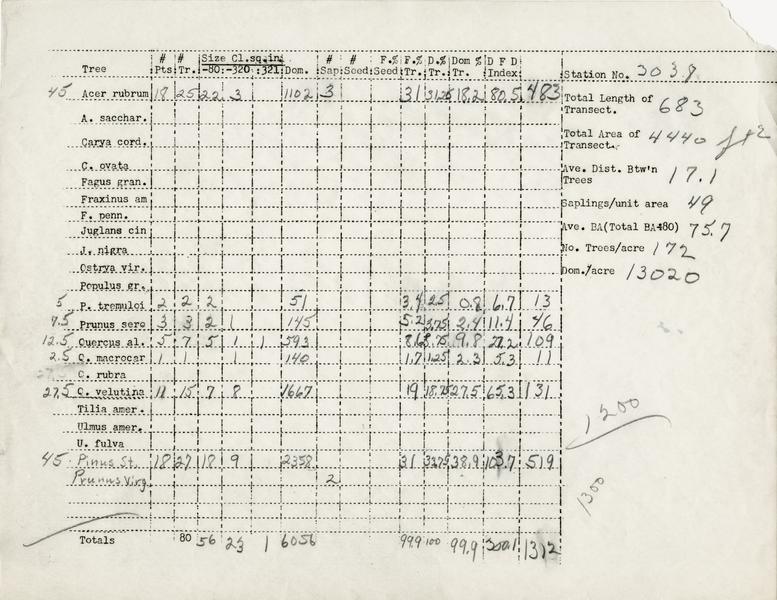 # # Size Cl.sq.in. # # F.% F.% D.% Dom % D F D
Tree Pts. Tr. -80 -320 321 Dom. Sap. Seed Seed Tr. Tr. Tr. Index
Station No. 3038
45 Acer rubrum 18 25 22 3 1102 3 31 31.25 18.2 80.5 483
Total Length of Transect. 683
A. sacchar.
Total Area of Transect. 4440 ft2
Carya cord.
C. ovata
Ave. Dist. Btw'n Trees 17.1
Fagus gran.
Fraxinus am
Saplings/unit area 49
F. penn.
Juglans cin
Ave. BA(Total BA÷80) 75.7
J. nigra
No. Trees/acre 172
Ostrya vir.
Dom./acre 13020
Populus gr.
5 P. tremuloi 2 2 2 51 3.4 2.5 0.8 6.7 13
7.5 Prunus sero 3 3 2 1 145 5.2 3.75 2.4 11.4 46
12.5 Quercus al. 5 7 5 1 1 593 8.6 8.75 9.8 27.2 109
2.5 Q. macrocar 1 1 1 140 1.7 1.25 2.3 5.3 11
Q. rubra
27.5 Q. velutina 11 15 7 8 1667 19 18.75 27.5 65.3 131
Tilia amer.
1200
Ulmus amer.
U. fulva
45 Pinus St. 18 27 18 9 2358 31 33.75 38.9 103.7 519
Prunus Virg. 2
1300
Totals 80 56 23 1 6056 99.9 100 99.9 300.1 1312